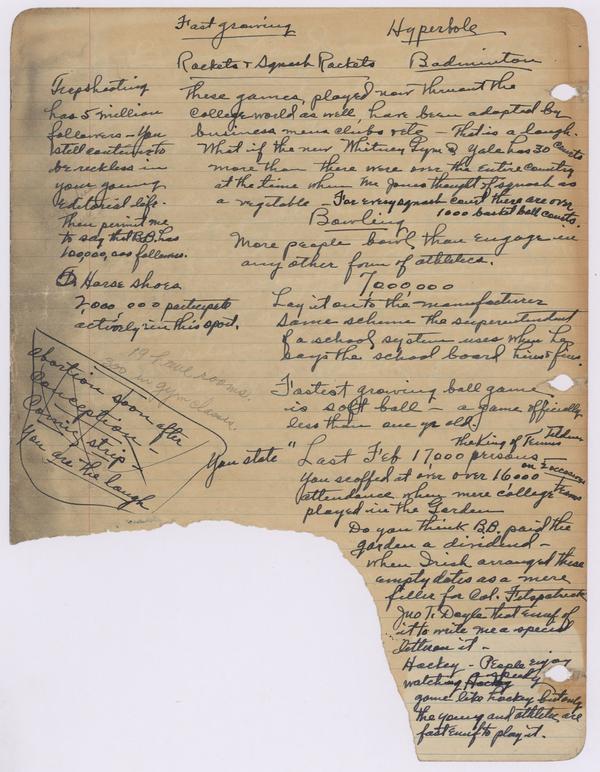 Fast growing
Hyperbole
Rackets & Squash Rackets Badminton
Trapshooting
has 5 million
followers - You
still continue to
be reckless in
your young
Editorial life.
Then permit me
to say that B.B. has
100,000,000 followers.
Horse Shoes
2,000,000 participate
actively in this sport.
These games, played now thruout the
College world as well, have been adopted by
business mens clubs etc - That is a laugh.
What if the new Whitney Gym @ Yale has 30 Courts
more than there were over the Entire Country
at the time when Mr Jones thought of squash as
a vegetable - For every squash court there are over
1000 basket ball courts.
Bowling
More people bowl than engage in
any other form of athletics.
7,000,000
Lay it onto the manufacturer
same scheme the superintendent
of a school system uses when he
says the school board hires & fires.
Fastest growing ball game
is soft ball - a game officially
less than one yr old.
19 home rooms.
30 in gym classes.
abortion soon after
Conception -
Comic strip -
You are the laugh
The King of Tennis Tilden
You state "Last Feb 17,000 persons -
You scoffed at over over 16,000 on 2 occasions
attendance when mere college teams
played in the Garden
Do you think B.B. paid the
garden a dividend -
when Irish arranged these
empty dates as a mere
filler for Col. Fitzpatrick
Jno T. Doyle that enuf of
it to write me a special
letter on it -
Hockey - People enjoy
watching Hockey speedy
game like hockey but only
the young and athletic are
fast enuf to play it.